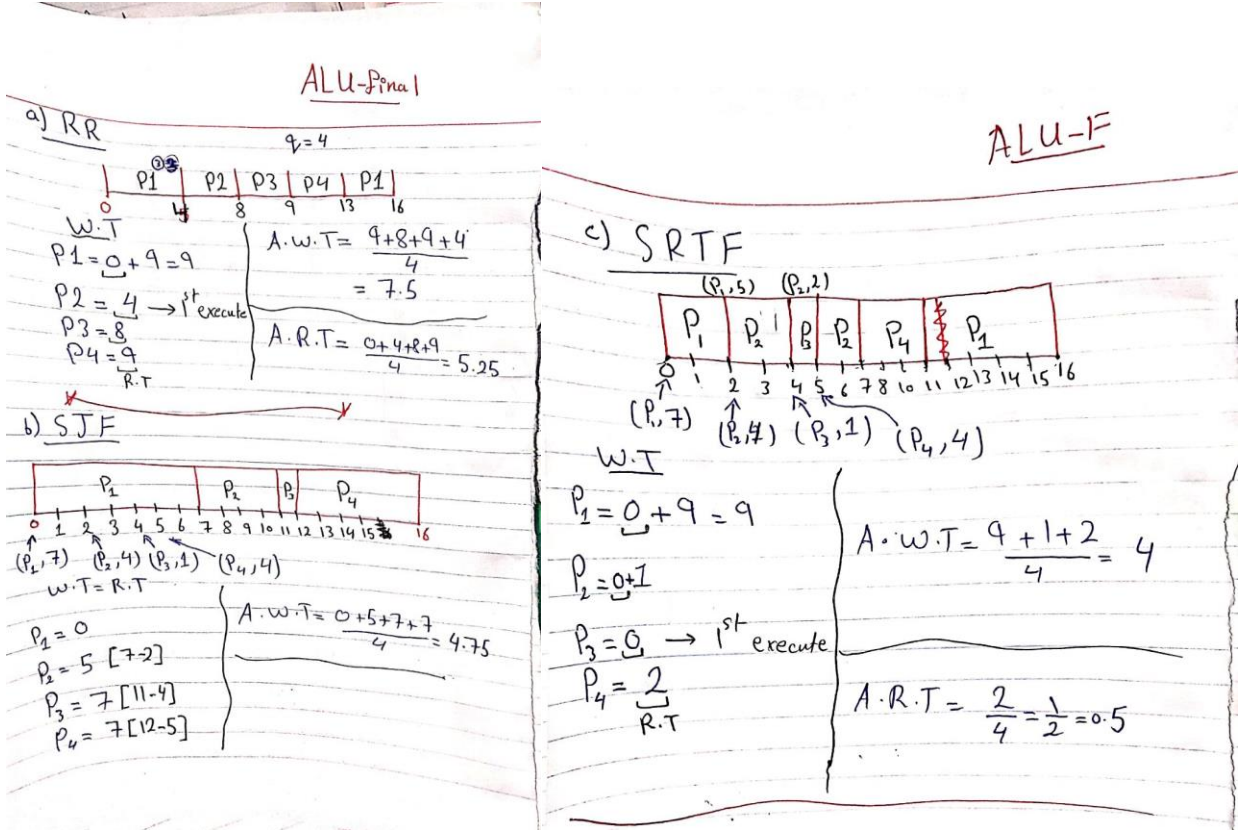 ALU-Final
a) RR
q=4
P1 P2 P3 P4 P1
0 4 8 9 13 16
W.T
P1=0+9=9
P2 = 4 → 1st execute
P3=8
P4=9
R.T
A.W.T= 9+8+9+4
4
= 7.5
A.R.T= 0+4+8+9
4
= 5.25
b) SJF
P1 P2 P3 P4
0 1 2 3 4 5 6 7 8 9 10 11 12 13 14 15 16
(P1,7) (P2,4) (P3,1) (P4,4)
W.T=R.T
P1=0
P2= 5 [7-2]
P3= 7 [11-4]
P4= 7[12-5]
A.W.T= 0+5+7+7
4
= 4.75
ALU-F
c) SRTF
(P1,5) (P2,2)
P1 P2 P3 P2 P4 P1
0 1 2 3 4 5 6 7 8 10 11 12 13 14 15 16
(P1,7) (P2,4) (P3,1) (P4,4)
W.T
P1=0+9=9
P2=0+1
P3=0 → 1st execute
P4= 2
R.T
A.W.T= 9+1+2
4
= 4
A.R.T= 2
4
= 1
2
=0.5